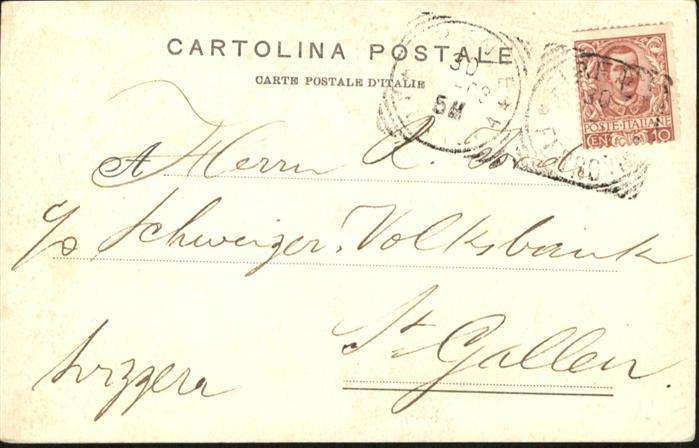 CARTOLINA POSTALE
CARTE POSTALE D'ITALIE
30
5M
POSTE·ITALIANE
CENT. 10
A Herrn R.
c/o Schweizer. Volksbank
St. Gallen
Svizzera